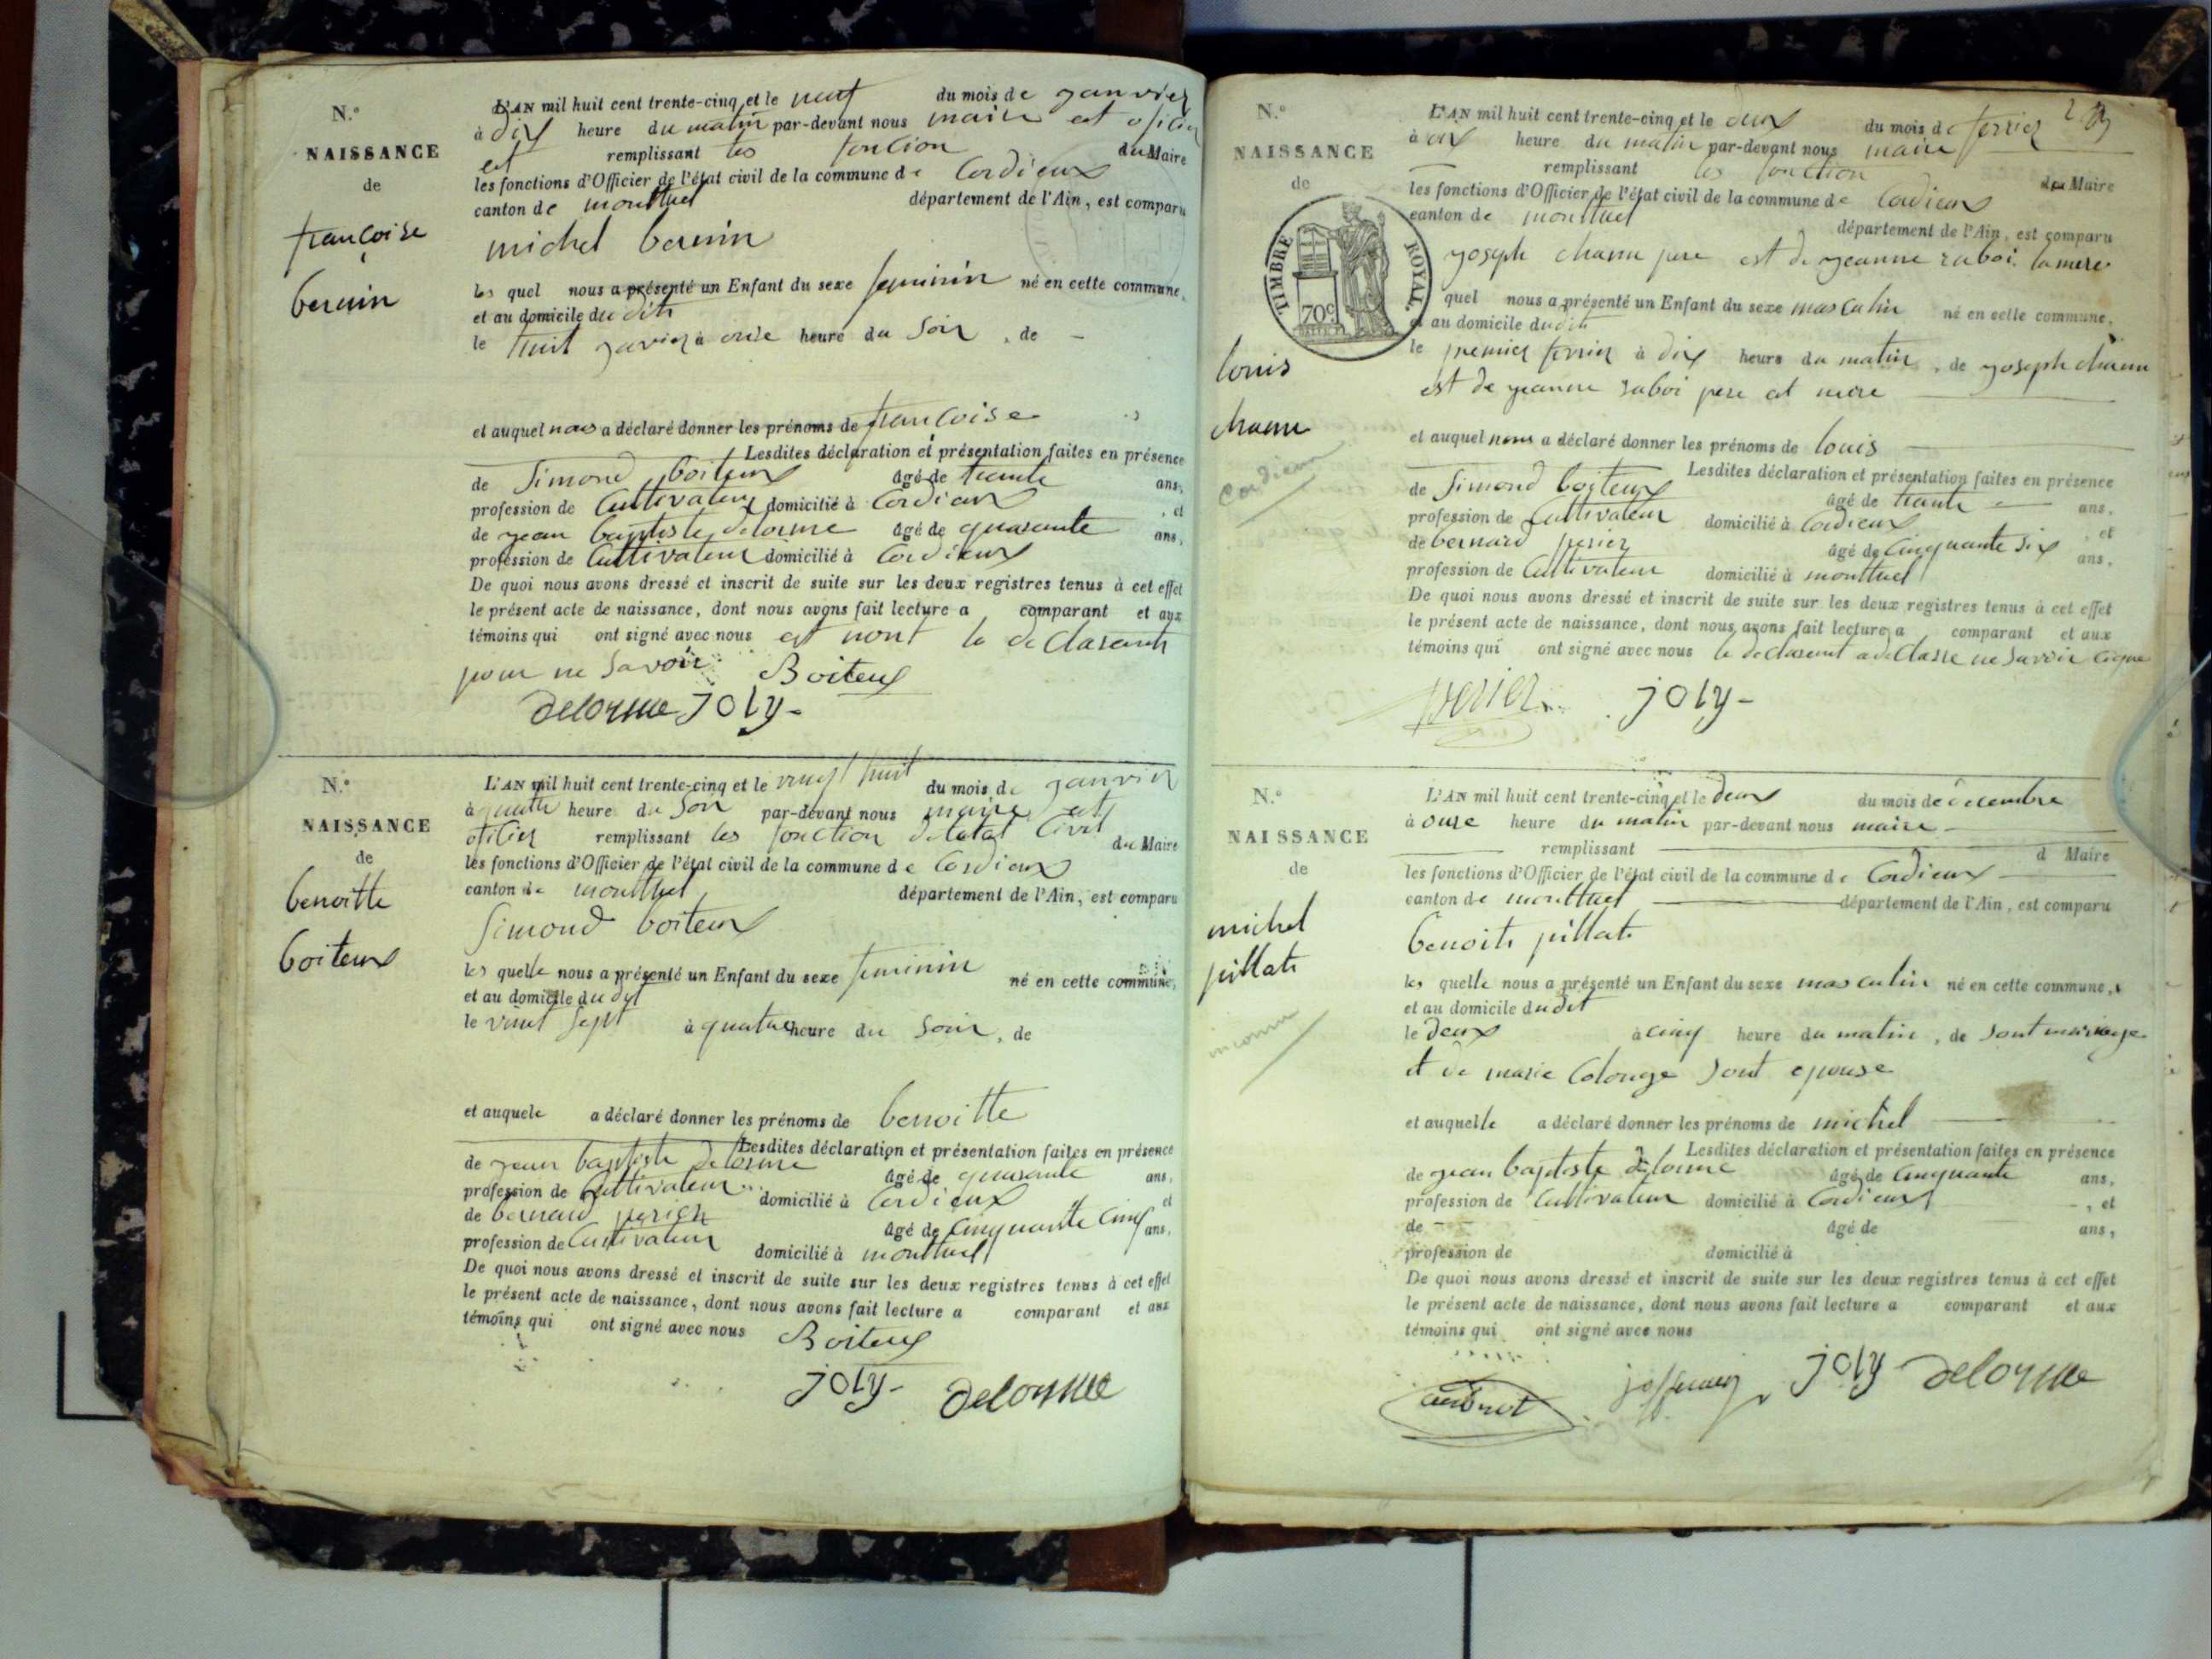 N.º
NAISSANCE
de
françoise
bernin
L'AN mil huit cent trente-cinq et le neuf du mois de janvier
à dix heure du matin par-devant nous maire et oficier
et remplissant les fonction du Maire
les fonctions d'Officier de l'état civil de la commune de Cordieux
canton de montluel département de l'Ain, est comparu
michel bernin
les quel nous a présenté un Enfant du sexe feminin né en cette commune,
et au domicile du dit
le huit janvier à onze heure du Soir, de -
et auquel nous a déclaré donner les prénoms de françoise
Lesdites déclaration et présentation faites en présence
de Simond boiteux âgé de trente ans,
profession de Cultivateur domicilié à Cordieux, et
de jean baptiste delorme âgé de quarante ans,
profession de Cultivateur domicilié à Cordieux
De quoi nous avons dressé et inscrit de suite sur les deux registres tenus à cet effet
le présent acte de naissance, dont nous avons fait lecture a comparant et aux
témoins qui ont signé avec nous est nont le declarant
pour ne Savoir Boiteux
delorme JOLY-
N.º
NAISSANCE
de
benoitte
boiteux
L'AN mil huit cent trente-cinq et le vingt huit du mois de janvier
à quatre heure du Soir par-devant nous maire et
oficier remplissant les fonction de letat Civil du Maire
les fonctions d'Officier de l'état civil de la commune de Cordieux
canton de montluel département de l'Ain, est comparu
Simond boiteux
les quelle nous a présenté un Enfant du sexe feminin né en cette commune,
et au domicile du dyt
le vint sept à quatre heure du Soir, de
et auquele a déclaré donner les prénoms de benoitte
Lesdites déclaration et présentation faites en présence
de jean baptiste delorme âgé de quarante ans,
profession de Cultivateur domicilié à Cordieux et
de bernard perier âgé de Cinquante Cinq ans,
profession de Cultivateur domicilié à montluel
De quoi nous avons dressé et inscrit de suite sur les deux registres tenus à cet effet
le présent acte de naissance, dont nous avons fait lecture a comparant et aux
témoins qui ont signé avec nous Boiteux
JOLY- delorme
N.º
NAISSANCE
de
TIMBRE ROYAL
70c
louis
chanu
Cordieux
L'AN mil huit cent trente-cinq et le deux du mois de fevrier
à dix heure du matin par-devant nous maire
remplissant les fonction du Maire
les fonctions d'Officier de l'état civil de la commune de Cordieux
canton de montluel département de l'Ain, est comparu
joseph chanu pere est de jeanne raboi la mere
quel nous a présenté un Enfant du sexe masculin né en cette commune,
et au domicile du dit
le premier fevrier à dix heure du matin, de joseph chanu
est de jeanne raboi pere et mere
et auquel nous a déclaré donner les prénoms de louis
Lesdites déclaration et présentation faites en présence
de Simond boiteux âgé de trante ans,
profession de Cultivateur domicilié à Cordieux, et
de bernard perier âgé de Cinquante six ans,
profession de Cultivateur domicilié à montluel
De quoi nous avons dressé et inscrit de suite sur les deux registres tenus à cet effet
le présent acte de naissance, dont nous avons fait lecture a comparant et aux
témoins qui ont signé avec nous le declarent a declasre ne Savoir Cigne
perier JOLY-
N.º
NAISSANCE
de
michel
pillat
inconnu
L'AN mil huit cent trente-cinq et le deux du mois de decembre
à onze heure du matin par-devant nous maire
remplissant d Maire
les fonctions d'Officier de l'état civil de la commune de Cordieux
canton de montluel département de l'Ain, est comparu
benoit pillat
les quelle nous a présenté un Enfant du sexe masculin né en cette commune,
et au domicile du dit
le deux à cinq heure du matin, de Sont mariage
et de marie Colonge Sont epouse
et auquelle a déclaré donner les prénoms de michel
Lesdites déclaration et présentation faites en présence
de jean baptiste delorme âgé de Cinquante ans,
profession de Cultivateur domicilié à Cordieux, et
de - - âgé de ans,
profession de domicilié à
De quoi nous avons dressé et inscrit de suite sur les deux registres tenus à cet effet
le présent acte de naissance, dont nous avons fait lecture a comparant et aux
témoins qui ont signé avec nous
JOLY delorme